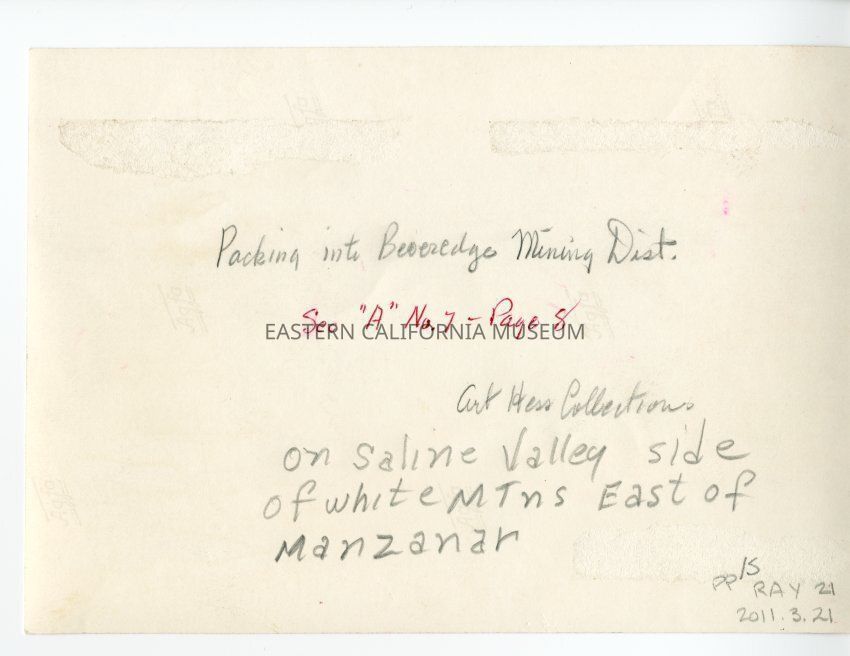 Packing into Beveredge Mining Dist.
See "A" No. 7 - Page 8
EASTERN CALIFORNIA MUSEUM
Art Hess Collections
on Saline Valley side
of white MTns East of
Manzanar
PP 15
RAY 21
2011.3.21